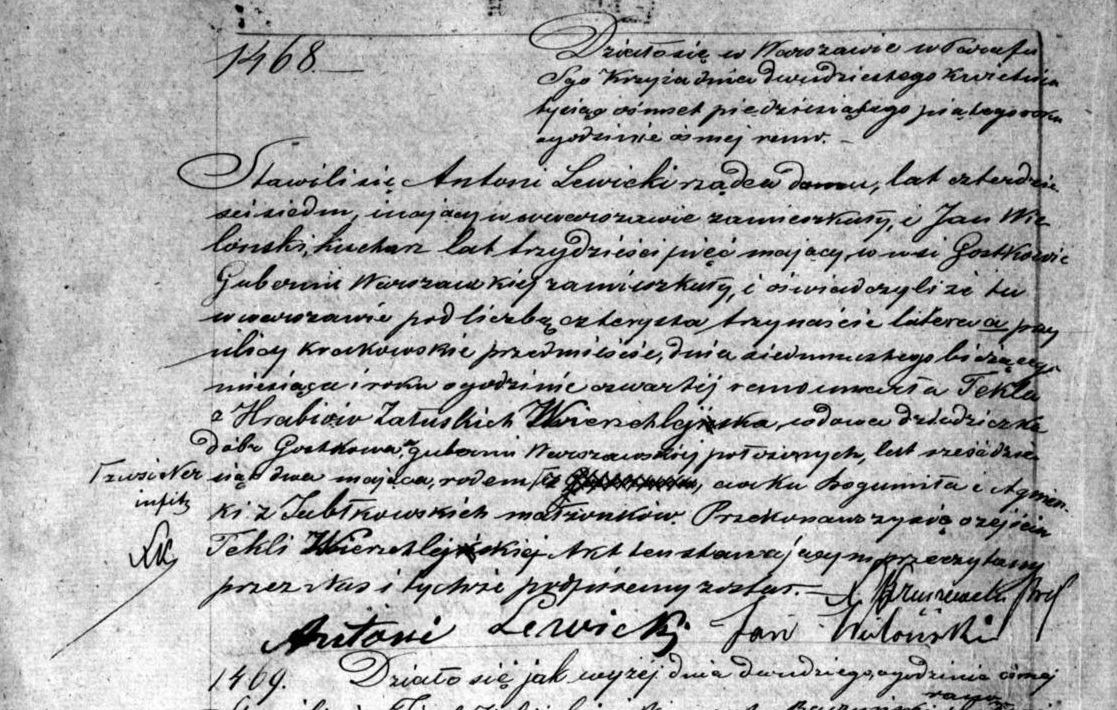 1468.
Działo się w Warszawie w Parafii
Sgo Krzyża dnia dwudziestego Kwietnia
tysiąc ośmset piędziesiątego piątego roku
o godzinie ósmej rano. –
Stawili się Antoni Lewicki rządca domu, lat czterdzie-
ści siedm, mający w Warszawie zamieszkały, i Jan Wie-
loński, kucharz lat trzydzieści pięć mający, w wsi Gostkowie
Gubernii Warszawskiej zamieszkały, i oświadczyli że tu
w Warszawie pod liczbą czterysta trzynaście litera a przy
ulicy Krakowskie przedmieście, dnia siedmnastego bieżącego
miesiąca i roku o godzinie czwartej rano umarła Tekla
z Hrabiów Załuskich Wierzchlejska, wdowa dziedziczka
dóbr Gostkowa, gubernii Warszawskiej położonych, lat sześćdzie-
siąt dwa mająca, rodem, córka Bogumiła i Agniesz-
ki z Jabłkowskich małżonków. Przekonawszy się o zejściu
Tekli Wierzchlejskiej Akt ten stawającym przeczytany
przez Nas i tychże podpisany został. –
Antoni Lewicki Jan Wieloński
1469. Działo się jak wyżej dnia dwudziego, o godzinie ósmej
rano